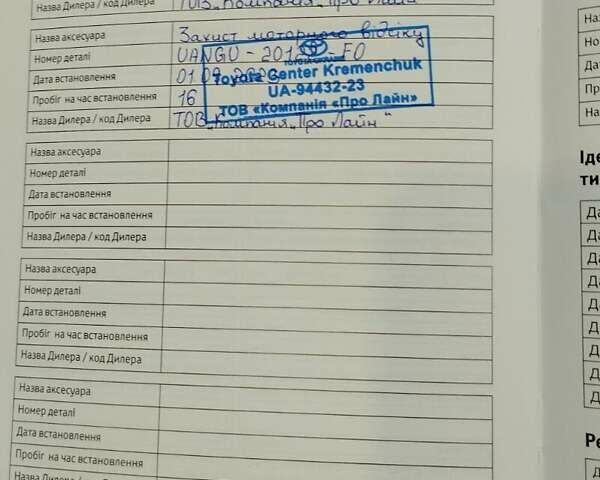 Назва Дилера / код Дилера ТОВ „Компанія „Про Лайн
Назва аксесуара Захист моторного відсіку
Номер деталі UANGU - FO
Дата встановлення 01
Пробіг на час встановлення 16
Назва Дилера / код Дилера ТОВ „Компанія „Про Лайн"
TOYOTA
Toyota Center Kremenchuk
UA-94432-23
ТОВ «Компанія «Про Лайн»
Назва аксесуара
Номер деталі
Дата встановлення
Пробіг на час встановлення
Назва Дилера / код Дилера
Назва аксесуара
Номер деталі
Дата встановлення
Пробіг на час встановлення
Назва Дилера / код Дилера
Назва аксесуара
Номер деталі
Дата встановлення
Пробіг на час встановлення
Назва Дилера / код Дилера
На
Но
Да
Пр
На
Іде
ти
Да
Да
Да
Да
Да
Да
Да
Да
Д
Ре
Д